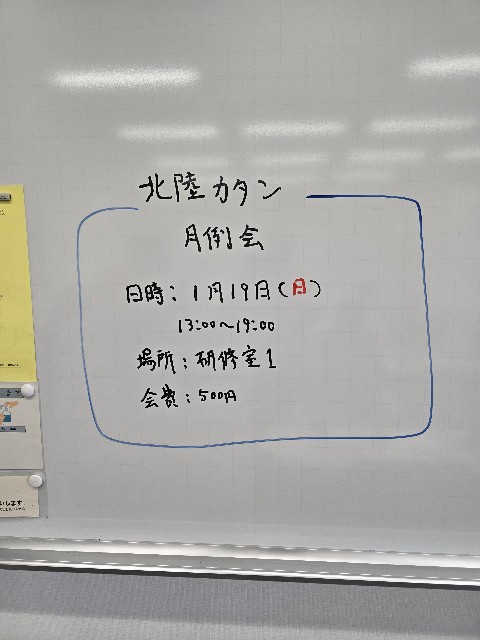 北陸カタン
月例会
日時：1月19日(日)
13:00～19:00
場所：研修室1
会費：500円